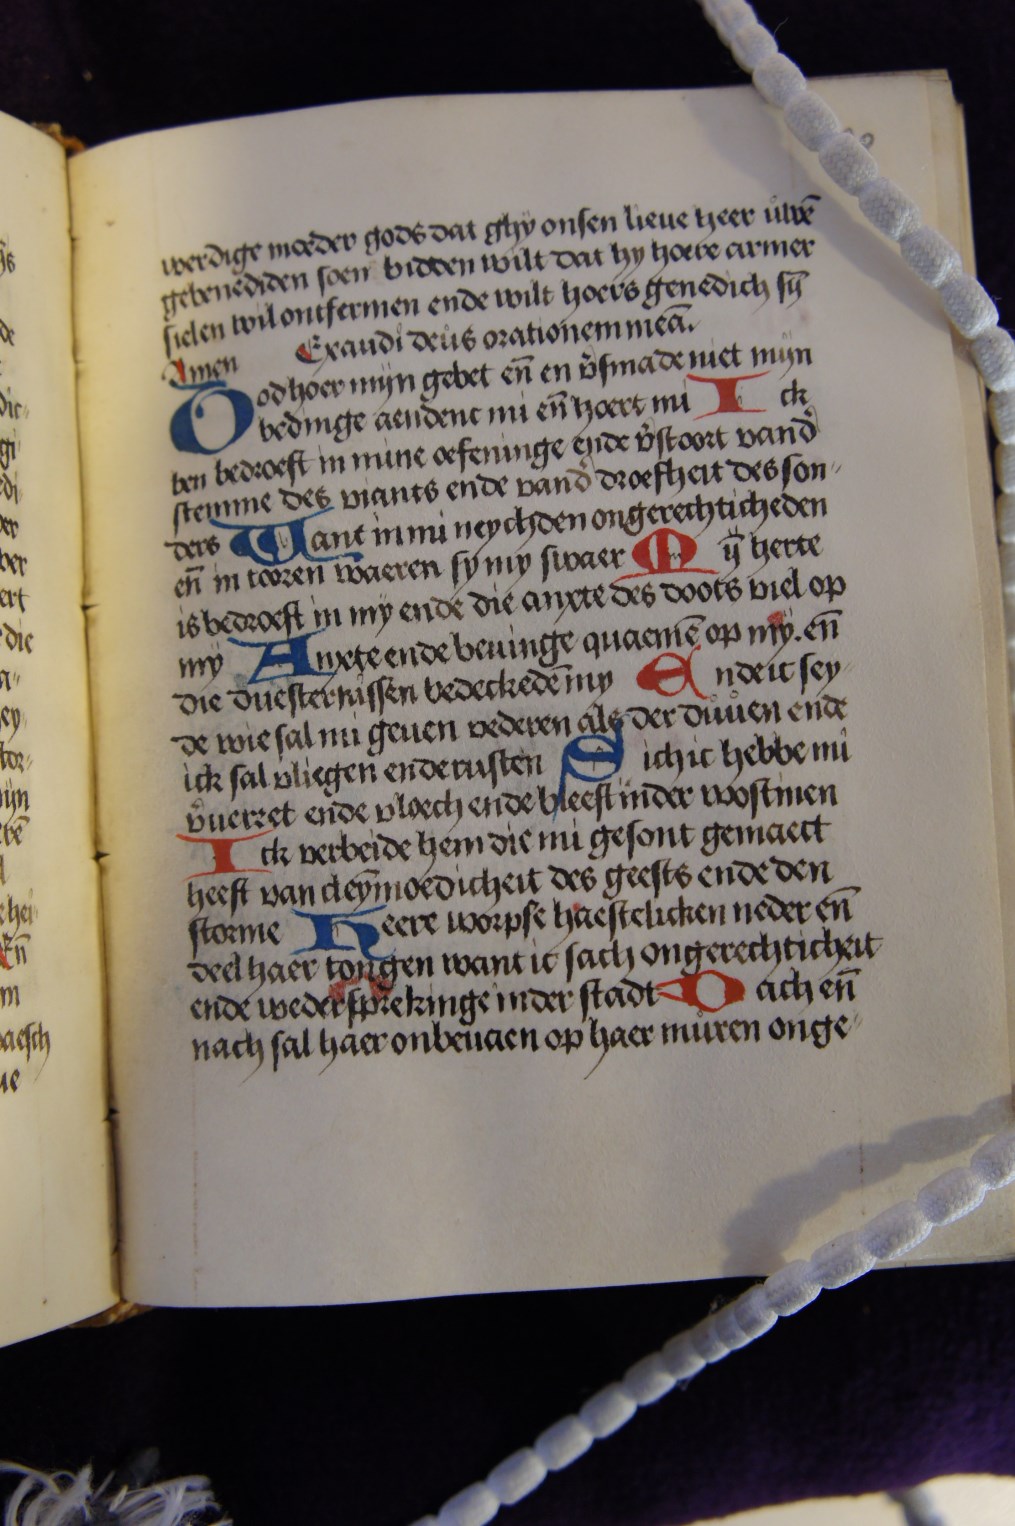 werdige moeder gods dat ghy onsen lieue heer uwē
gebenediden soen bidden wilt dat hy hoere armer
sielen wil ontfermen ende wilt hoers genedich sȳ
Amen Exaudi deus orationem meā.
God hoer mijn gebet eñ en v̄smade niet mijn
bedinge aendenc mi eñ hoert mi Ick
ben bedroeft in mine oefeninge ende v̄stoort vand̄
stemme des viants ende vand̄ droefheit des son-
ders Want in mi neychden ongerechticheden
eñ in tooren waeren sy my swaer Mÿ herte
is bedroeft in my ende die anxte des doots viel op
my Anxte ende beuinge quaemē op my. eñ
die duesternissen bedeckedē my Ende ic sey-
de wie sal mi geuen vederen als der duuen ende
ick sal vliegen ende rusten Sich ic hebbe mi
v̄uerret ende vloech ende bleeft inder wostinen
Ick verbeide hem die mi gesont gemaect
heeft van cleȳmoedicheit des geests ende den
storme Heere worpse haestelicken neder eñ
deel haer tongen want ic sach ongerechticheit
ende wedersprekinge inder stadt Dach eñ
nach sal haer onbeuaen op haer muren onge-